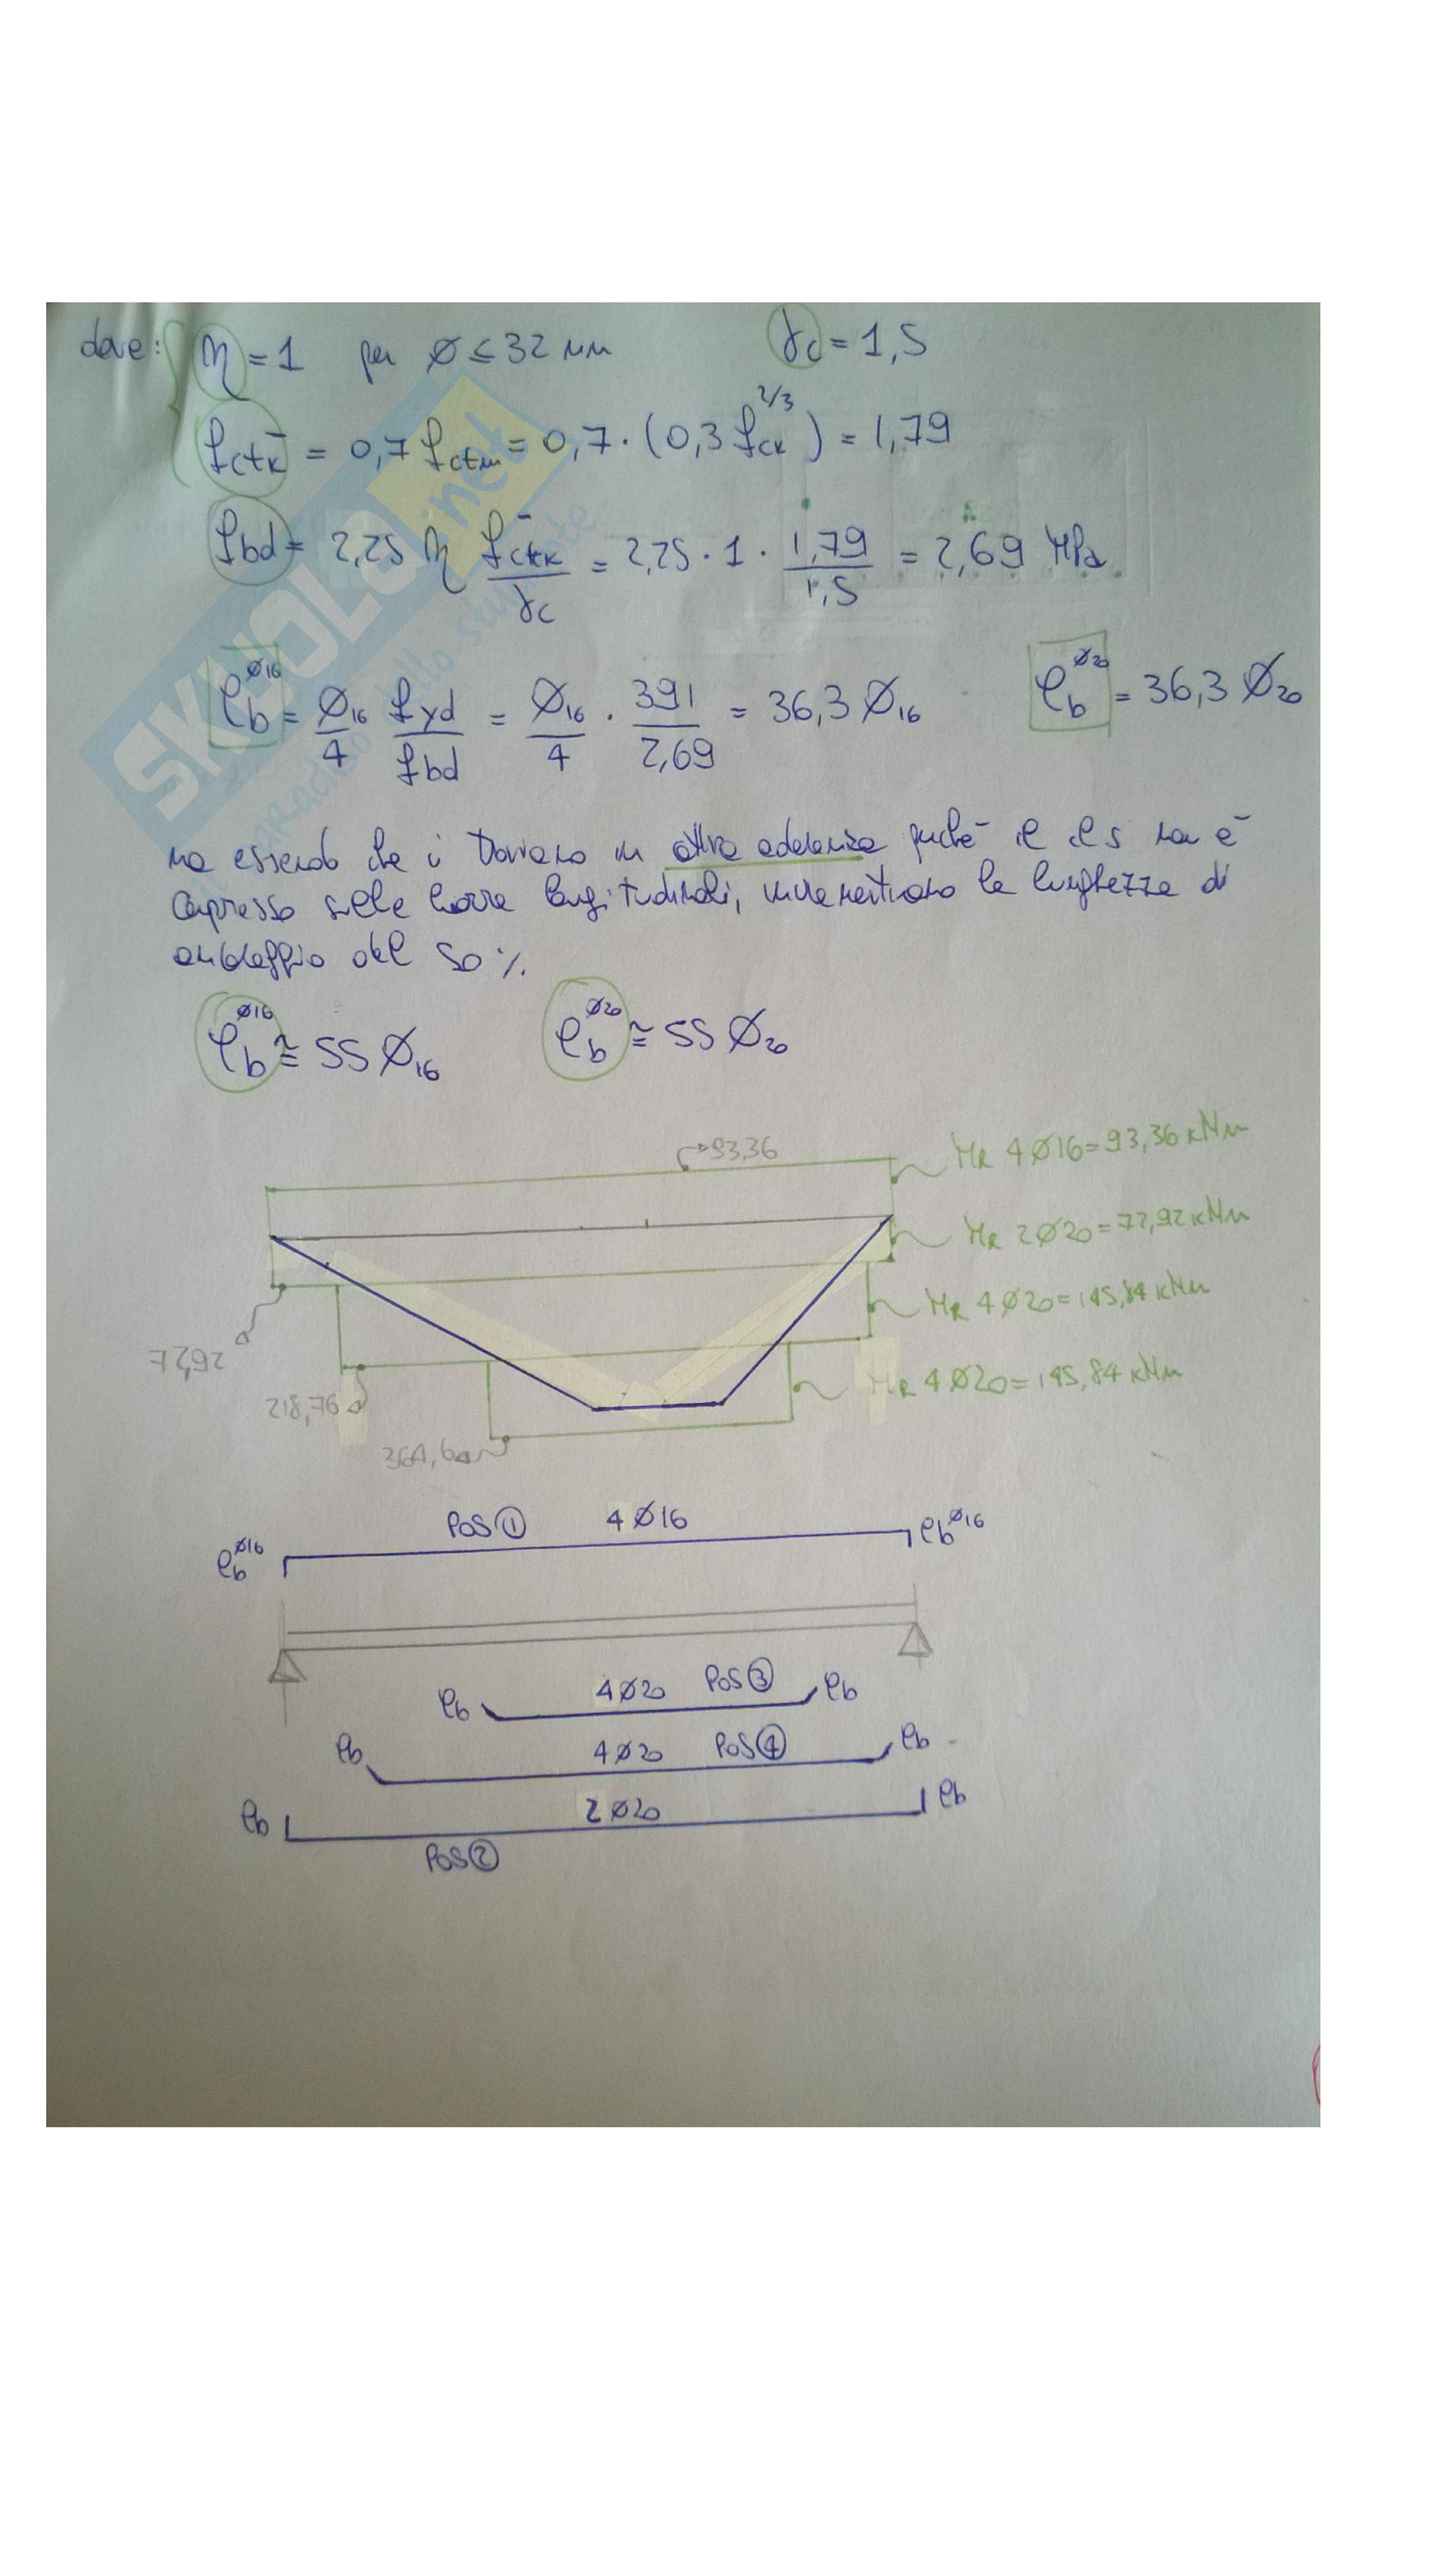 dove: η = 1 per ø ≤ 32 mm γc = 1,5
fctk⁻ = 0,7 fctm = 0,7 · (0,3 fck^2/3) = 1,79
fbd = 2,25 η fctk⁻/γc = 2,25 · 1 · 1,79/1,5 = 2,69 MPa
ℓb^ø16 = Ø16/4 fyd/fbd = Ø16/4 · 391/2,69 = 36,3 Ø16 ℓb^ø20 = 36,3 Ø20
ma essendo che ci troviamo in perché il cls non è
compresso sulle barre longitudinali, incrementiamo la lunghezza di
ancoraggio del 50 %.
ℓb^ø16 ≅ 55 Ø16 ℓb^ø20 ≅ 55 Ø20
93,36
MR 4Ø16 = 93,36 kNm
MR 2Ø20 = 72,92 kNm
MR 4Ø20 = 145,84 kNm
MR 4Ø20 = 145,84 kNm
72,92
218,76
364,60
POS ① 4Ø16
ℓb^ø16 ℓb^ø16
ℓb 4Ø20 POS ③ ℓb
ℓb 4Ø20 POS ④ ℓb
ℓb 2Ø20 ℓb
POS ②
SKUOLA.net